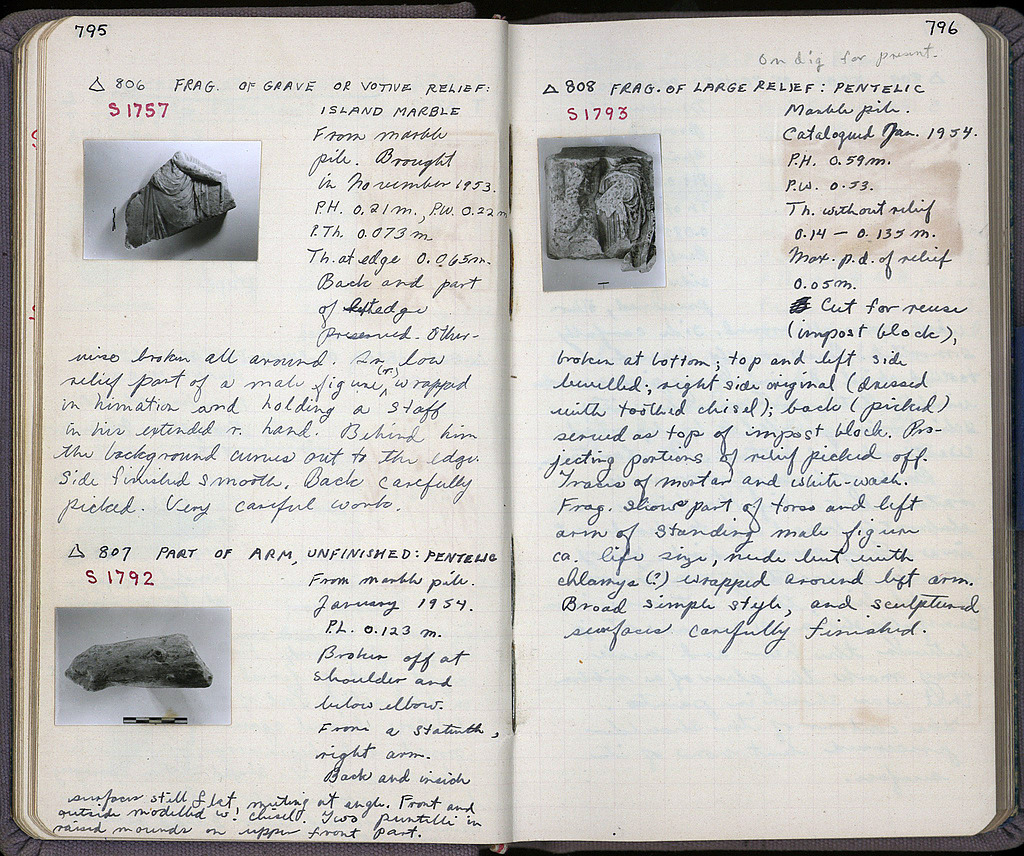 795
Δ 806 FRAG. OF GRAVE OR VOTIVE RELIEF:
S 1757 ISLAND MARBLE
From marble
pile. Brought
in November 1953.
P.H. 0.21 m., P.W. 0.22 m
P.Th. 0.073 m
Th. at edge 0.065 m.
Back and part
of edge
preserved. Other-
wise broken all around. In low
relief part of a male (?) figure, wrapped
in himation and holding a staff
in his extended r. hand. Behind him
the background curves out to the edge.
Side finished smooth. Back carefully
picked. Very careful work.
Δ 807 PART OF ARM, UNFINISHED: PENTELIC
S 1792
From marble pile.
January 1954.
P.L. 0.123 m.
Broken off at
shoulder and
below elbow.
From a statuette,
right arm.
Back and inside
surfaces still flat, meeting at angle. Front and
outside modelled w. chisel. Two puntelli in
raised mounds on upper front part.
796
On dig for present.
Δ 808 FRAG. OF LARGE RELIEF: PENTELIC
S 1793
Marble pile.
Catalogued Jan. 1954.
P.H. 0.59 m.
P.W. 0.53.
Th. without relief
0.14 – 0.135 m.
Max. p.d. of relief
0.05 m.
Cut for reuse
(impost block),
broken at bottom; top and left side
bevelled; right side original (dressed
with toothed chisel); back (picked)
served as top of impost block. Pro-
jecting portions of relief picked off.
Traces of mortar and white-wash.
Frag. shows part of torso and left
arm of standing male figure
ca. life size, nude but with
chlamys (?) wrapped around left arm.
Broad simple style, and sculptured
surfaces carefully finished.